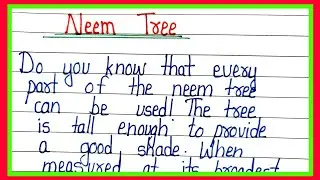 Neem Tree
Do you know that every
part of the neem tree
can be used! The tree
is tall enough to provide
a good shade. When
measured at its broadest